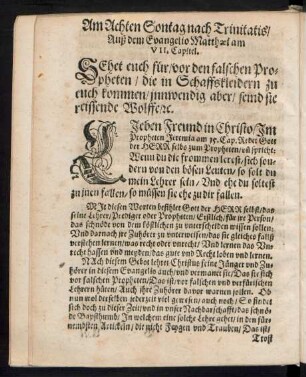 Am Achten Sontag nach Trinitatis/
Auß dem Evangelio Matthæi am
VII. Capitel.
SEhet euch für/ vor den falschen Pro-
pheten/ die in Schaffskleidern zu
euch kommen/ inwendig aber/ seind sie
reissende Wolffe/ꝛc.
LIeben Freund in Christo/ Im
Propheten Jeremia am xv. Cap. Redet Gott
der HERR selbs zum Propheten/ und spricht:
Wenn du die frommen lerest/ sich son-
dern von den bösen Leuten/ so solt du
mein Lehrer sein/ Und ehe du soltest
zu inen fallen/ so müssen sie ehe zu dir fallen.
Mit diesen Worten befihlet Gott der HERR selbst/ das
seine Lehrer/ Prediger oder Propheten/ Erstlich/ für ire Person/
das schnöde von dem köstlichen zu unterscheiden wissen sollen/
Und darnach ire Zuhörer zu unterweisen/ das sie gleiches falls
verstehen lernen/ was recht oder unrecht/ Und lernen das Un-
recht hassen und meyden/ das gute und Recht loben und lernen.
NAch diesem Gebot lehret Christus seine Jünger und Zu-
hörer in diesem Evangelio auch/ und vermanet sie/ Das sie sich
vor falschen Propheten/ Das ist/ vor falschen und verfürischen
Lehrern hüten/ Auch ihre Zuhörer davor warnen sollen. Ob
nun wol derselben jederzeit viel gewesen/ auch noch/ So findet
sich doch zu dieser Zeit/ und in unser Nachbarschafft/ das schnö-
de Bapsthumb/ In welchem eine solche Lehre gehet/ in den für-
nemsten Artickeln/ die nicht Feygen und Trauben/ Das ist/
Trost